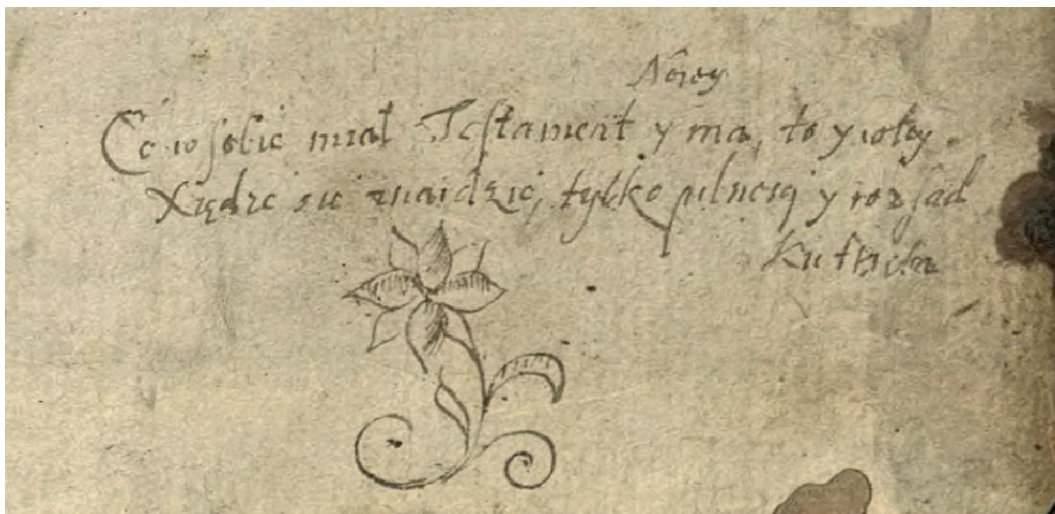 Nowy
Co w sobie miał Testament y ma, to y w tey
Xiędze się znaidzie, tylko pilnosci y rozsąd